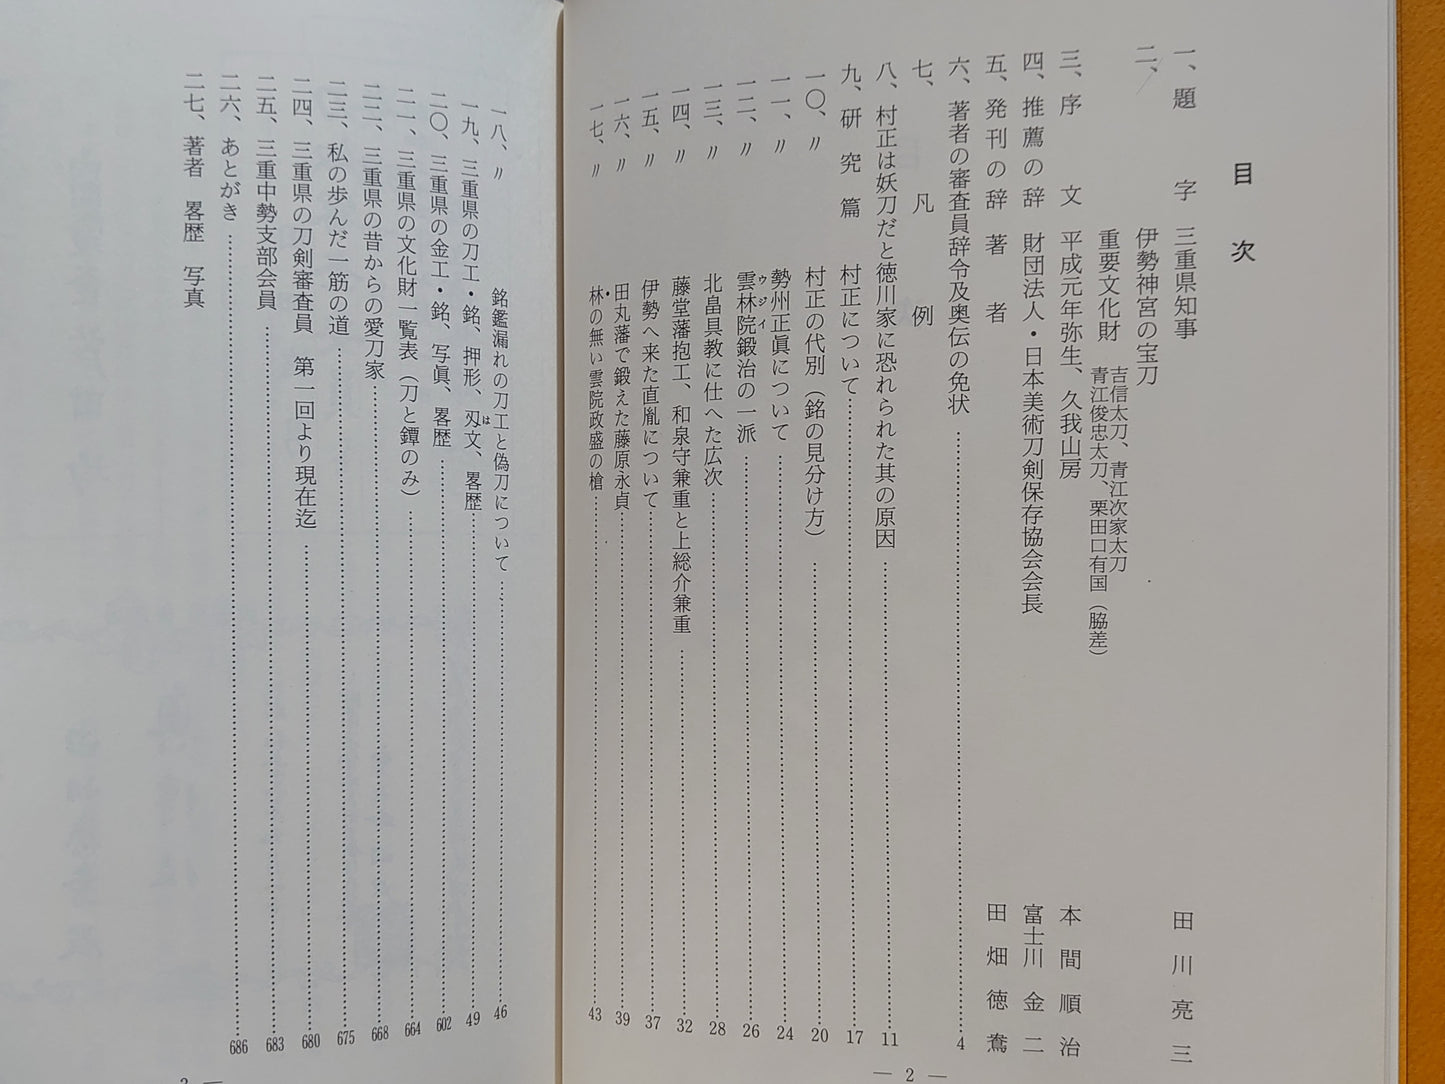 目次
一、題字 三重県知事 田川亮三
二、伊勢神宮の宝刀
重要文化財 吉信太刀、青江次家太刀
青江俊忠太刀、栗田口有国（脇差）
三、序文 平成元年弥生、久我山房 本間順治
四、推薦の辞 財団法人・日本美術刀剣保存協会会長 富士川金二
五、発刊の辞 著者 田畑徳鴦
六、著者の審査員辞令及奥伝の免状……4
七、凡例
八、村正は妖刀だと徳川家に恐れられた其の原因……11
九、研究篇 村正について……17
一〇、〃 村正の代別（銘の見分け方）……20
一一、〃 勢州正眞について……24
一二、〃 雲林院鍛冶の一派……26
ウジイ
一三、〃 北畠具教に仕へた広次……28
一四、〃 藤堂藩抱工、和泉守兼重と上総介兼重……32
一五、〃 伊勢へ来た直胤について……37
一六、〃 田丸藩で鍛えた藤原永貞……39
一七、〃 林の無い雲院政盛の槍……43
— 2 —
一八、〃 銘鑑漏れの刀工と偽刀について……46
一九、三重県の刀工・銘、押形、刄文、畧歴……49
は
二〇、三重県の金工・銘、写眞、畧歴……602
二一、三重県の文化財一覧表（刀と鐔のみ）……664
二二、三重県の昔からの愛刀家……668
二三、私の歩んだ一筋の道……675
二四、三重県の刀剣審査員 第一回より現在迄……680
二五、三重中勢支部会員……683
二六、あとがき……686
二七、著者 畧歴 写真